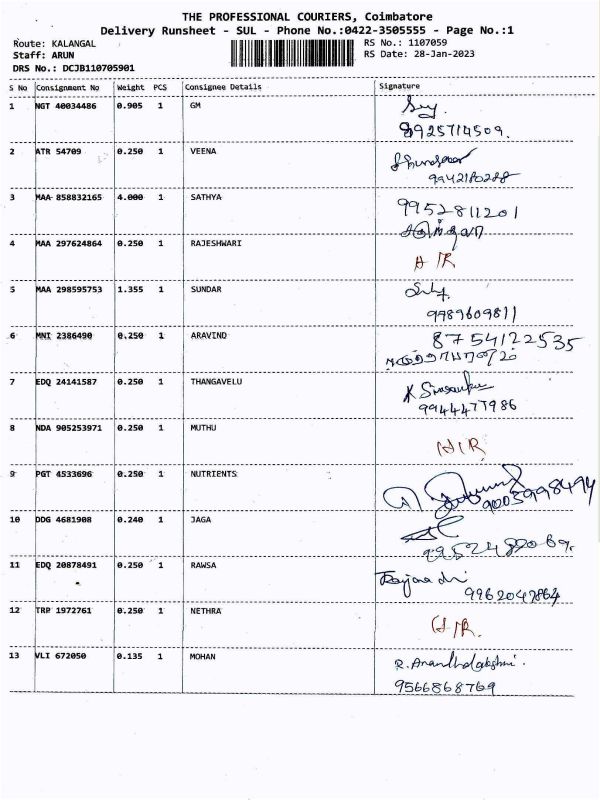 THE PROFESSIONAL COURIERS, Coimbatore
Delivery Runsheet - SUL - Phone No.:0422-3505555 - Page No.:1
Route: KALANGAL RS No.: 1107059
Staff: ARUN RS Date: 28-Jan-2023
DRS No.: DCJB110705901
S No Consignment No Weight PCS Consignee Details Signature
1 NGT 40034486 0.905 1 GM
8925714509.
2 ATR 54709 0.250 1 VEENA
9942180288
3 MAA 858832165 4.000 1 SATHYA 9952811201
4 MAA 297624864 0.250 1 RAJESHWARI
5 MAA 298595753 1.355 1 SUNDAR
9789609811
6 MNI 2386490 0.250 1 ARAVIND 8754122535
7 EDQ 24141587 0.250 1 THANGAVELU
9944477986
8 NDA 905253971 0.250 1 MUTHU
9 PGT 4533696 0.250 1 NUTRIENTS
9003998494
10 DDG 4681908 0.240 1 JAGA
11 EDQ 20878491 0.250 1 RAWSA
9962047864
12 TRP 1972761 0.250 1 NETHRA
13 VLI 672050 0.135 1 MOHAN R. Anandhalakshmi.
9566868769